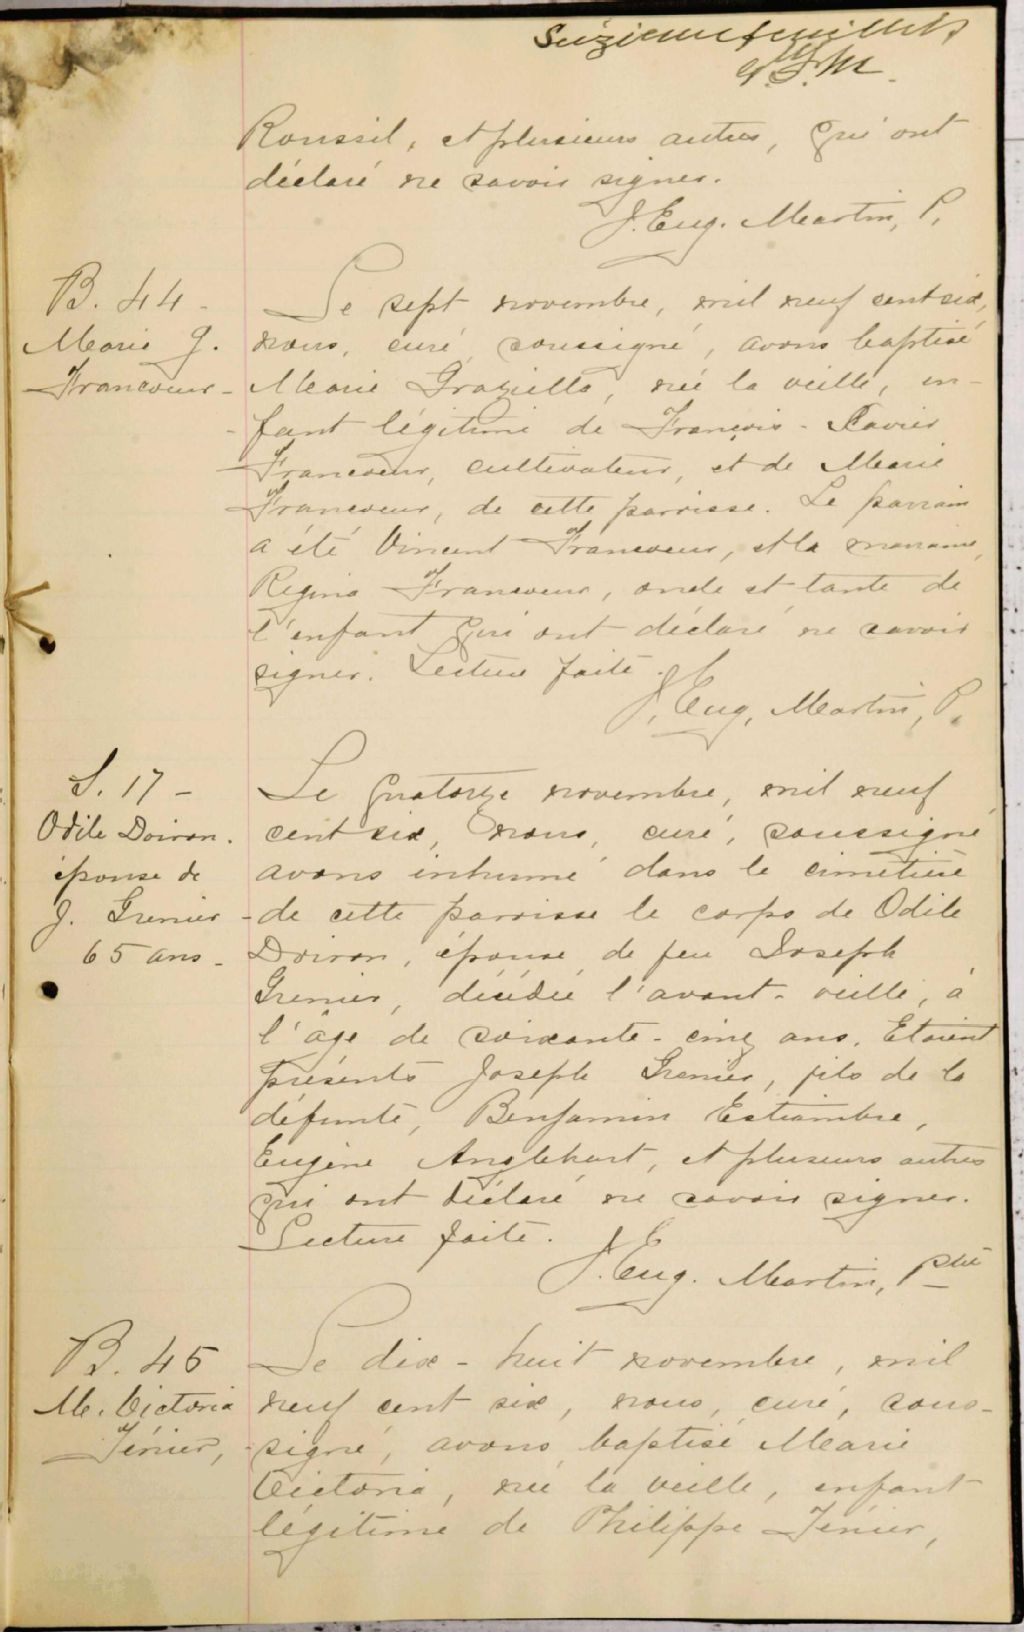 Seizième feuillet
Roussil, et plusieurs autres, qui ont
déclaré ne savoir signer.
J. Eug. Martin, P.
B. 44 -
Marie G.
Francoeur -
Le sept novembre, mil neuf cent six,
nous, curé, soussigné, avons baptisé
Marie Graziella, née la veille, en-
fant légitime de François-Xavier
Francoeur, cultivateur, et de Marie
Francoeur, de cette paroisse. Le parrain
a été Vincent Francoeur, et la marraine,
Regina Francoeur, oncle et tante de
l'enfant qui ont déclaré ne savoir
signer. Lecture faite.
J. Eug. Martin, P.
S. 17 -
Odile Doiron.
épouse de
J. Grenier -
65 ans -
Le quatorze novembre, mil neuf
cent six, nous, curé, soussigné
avons inhumé dans le cimetière
de cette paroisse le corps de Odile
Doiron, épouse de feu Joseph
Grenier, décédée l'avant-veille, à
l'âge de soixante-cinq ans. Etaient
présents Joseph Grenier, fils de la
défunte, Benjamin Estiambre,
Eugène Anglehart, et plusieurs autres
qui ont déclaré ne savoir signer.
Lecture faite.
J. Eug. Martin, Ptre
B. 45
M. Victoria
Jénier,
Le dix-huit novembre, mil
neuf cent six, nous, curé, sous-
signé, avons baptisé Marie
Victoria, née la veille, enfant
légitime de Philippe Jénier,